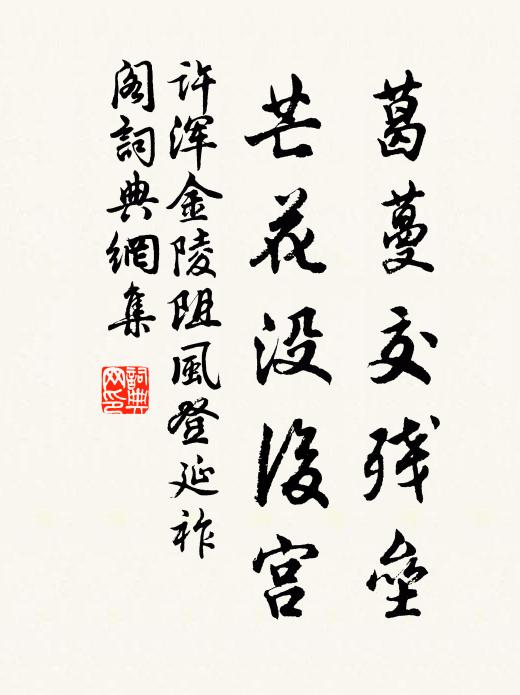 葛蔓交残壘
芒花没後宫
许浑金陵阻風登延祚
阁詞典網集
詞典网印